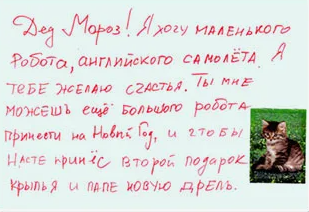 Дед Мороз! Я хочу маленького
робота, английского самолёта. Я
тебе желаю счастья. Ты мне
можешь ещё большого робота
принести на Новый Год, и чтобы
Насте принёс второй подарок
крылья и папе новую дрель.